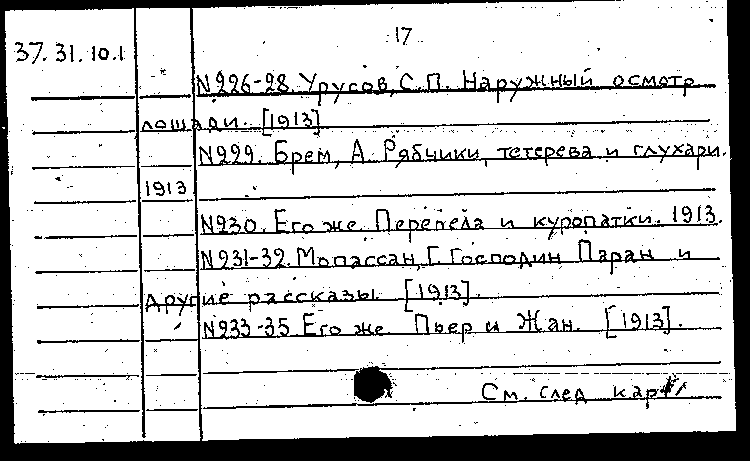 17
37.31.10.1
N226-28. Урусов, С.П. Наружный осмотр
лошади. [1913]
N229. Брем, А. Рябчики, тетерева и глухари.
1913
N230. Его же. Перепела и куропатки. 1913.
N231-32. Мопассан, Г. Господин Паран и
другие рассказы. [1913].
N233-35 Его же Пьер и Жан. [1913].
См. след карт